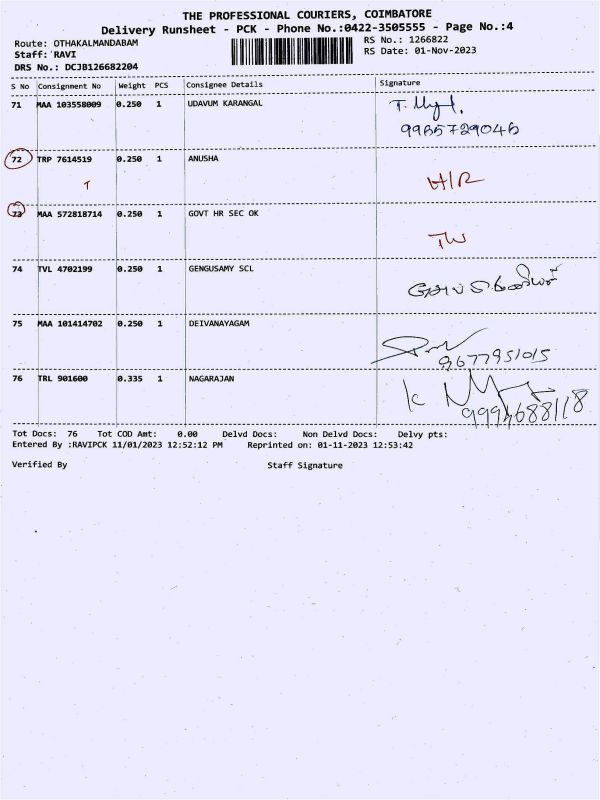 THE PROFESSIONAL COURIERS, COIMBATORE
Delivery Runsheet - PCK - Phone No.:0422-3505555 - Page No.:4
Route: OTHAKALMANDABAM
Staff: RAVI
DRS No.: DCJB126682204
RS No.: 1266822
RS Date: 01-Nov-2023
S No Consignment No Weight PCS Consignee Details Signature
71 MAA 103558009 0.250 1 UDAVUM KARANGAL
9965729046
72 TRP 7614519 0.250 1 ANUSHA
T H/R
73 MAA 572818714 0.250 1 GOVT HR SEC OK
TW
74 TVL 4702199 0.250 1 GENGUSAMY SCL
75 MAA 101414702 0.250 1 DEIVANAYAGAM
9677951015
76 TRL 901600 0.335 1 NAGARAJAN
K
Tot Docs: 76 Tot COD Amt: 0.00 Delvd Docs: Non Delvd Docs: Delvy pts:
Entered By :RAVIPCK 11/01/2023 12:52:12 PM Reprinted on: 01-11-2023 12:53:42
Verified By Staff Signature